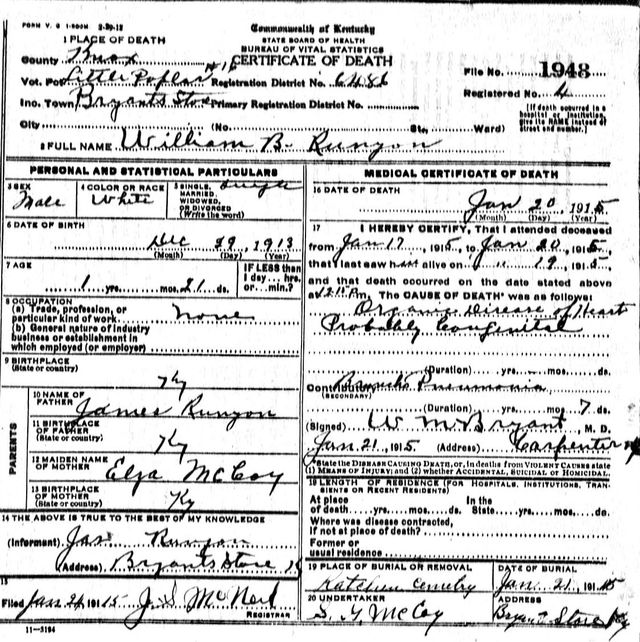 FORM V. S 1-500M 3-30-13
Commonwealth of Kentucky
STATE BOARD OF HEALTH
BUREAU OF VITAL STATISTICS
CERTIFICATE OF DEATH
1 PLACE OF DEATH
County Knox
Vot. Pct. Little Poplar # 16 Registration District No. 6486
Ino. Town Bryants Store Primary Registration District No.
City (No. St., Ward)
File No. 1948
Registered No. 4
[If death occurred in a hospital or institution, give its NAME instead of street and number.]
2 FULL NAME William B. Runyon
PERSONAL AND STATISTICAL PARTICULARS
3 SEX Male
4 COLOR OR RACE White
5 SINGLE, MARRIED, WIDOWED, OR DIVORCED (Write the word) Single
6 DATE OF BIRTH
Dec 29, 1913
(Month) (Day) (Year)
7 AGE
1 yrs. mos. 21 ds.
IF LESS than 1 day... hrs. or... min.?
8 OCCUPATION
(a) Trade, profession, or particular kind of work None
(b) General nature of industry business or establishment in which employed (or employer)
9 BIRTHPLACE (State or country) Ky
PARENTS
10 NAME OF FATHER James Runyon
11 BIRTHPLACE OF FATHER (State or country) Ky
12 MAIDEN NAME OF MOTHER Elza McCoy
13 BIRTHPLACE OF MOTHER (State or country) Ky
14 THE ABOVE IS TRUE TO THE BEST OF MY KNOWLEDGE
(Informant) Jas Runyon
(Address) Bryants Store
15
Filed Jan 24 1915 J. S. McNeil
REGISTRAR
11-3194
MEDICAL CERTIFICATE OF DEATH
16 DATE OF DEATH
Jan 20 1915
(Month) (Day) (Year)
17 I HEREBY CERTIFY, That I attended deceased
from Jan 17, 1915, to Jan 20 1915,
that I last saw him alive on 19, 1915,
and that death occurred on the date stated above
at 12 m. The CAUSE OF DEATH* was as follows:
Organic Disease of Heart
Probably Congenital
(Duration) yrs. mos. ds.
Contributory Pneumonia
(SECONDARY)
(Duration) yrs. mos. 7 ds.
(Signed) W M Bryant, M. D.
Jan. 21, 1915 (Address) Carpenter
*State the DISEASE CAUSING DEATH, or, in deaths from VIOLENT CAUSES state (1) MEANS OF INJURY; and (2) whether ACCIDENTAL, SUICIDAL or HOMICIDAL.
18 LENGTH OF RESIDENCE (FOR HOSPITALS, INSTITUTIONS, TRANSIENTS OR RECENT RESIDENTS)
At place of death yrs. mos. ds. In the State yrs. mos. ds.
Where was disease contracted, if not at place of death?
Former or usual residence
19 PLACE OF BURIAL OR REMOVAL DATE OF BURIAL
Jan. 21 1915
20 UNDERTAKER ADDRESS
S. Y McCoy Bryant Store Ky